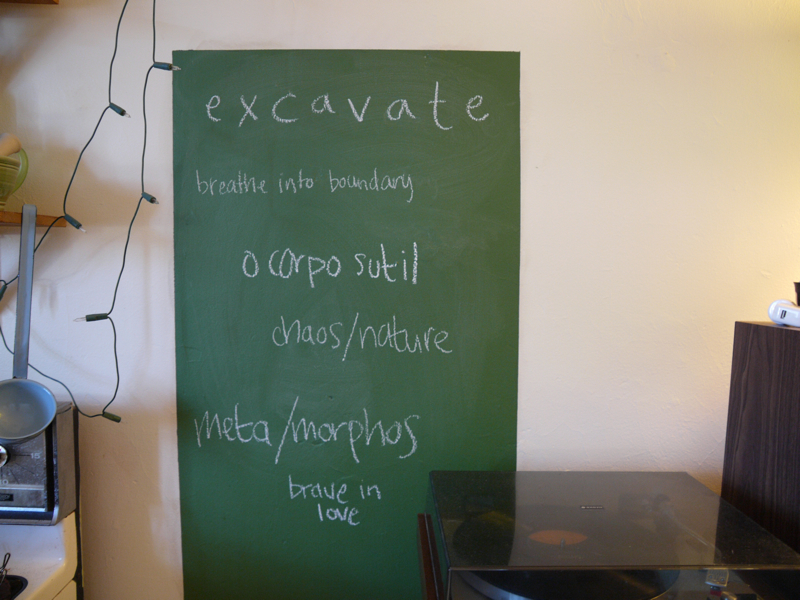 excavate
breathe into boundary
o corpo sutil
chaos/nature
meta/morphos
brave in
love